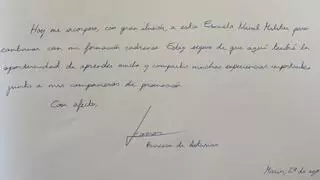 Hoy me incorporo, con gran ilusión, a esta Escuela Naval Militar para
continuar con mi formación castrense. Estoy seguro de que aquí tendré la
oportunidad de aprender mucho y compartir muchas experiencias importantes
junto a mis compañeros de promoción.
Con afecto,
Leonor
Princesa de Asturias
Marín, 29 de ago